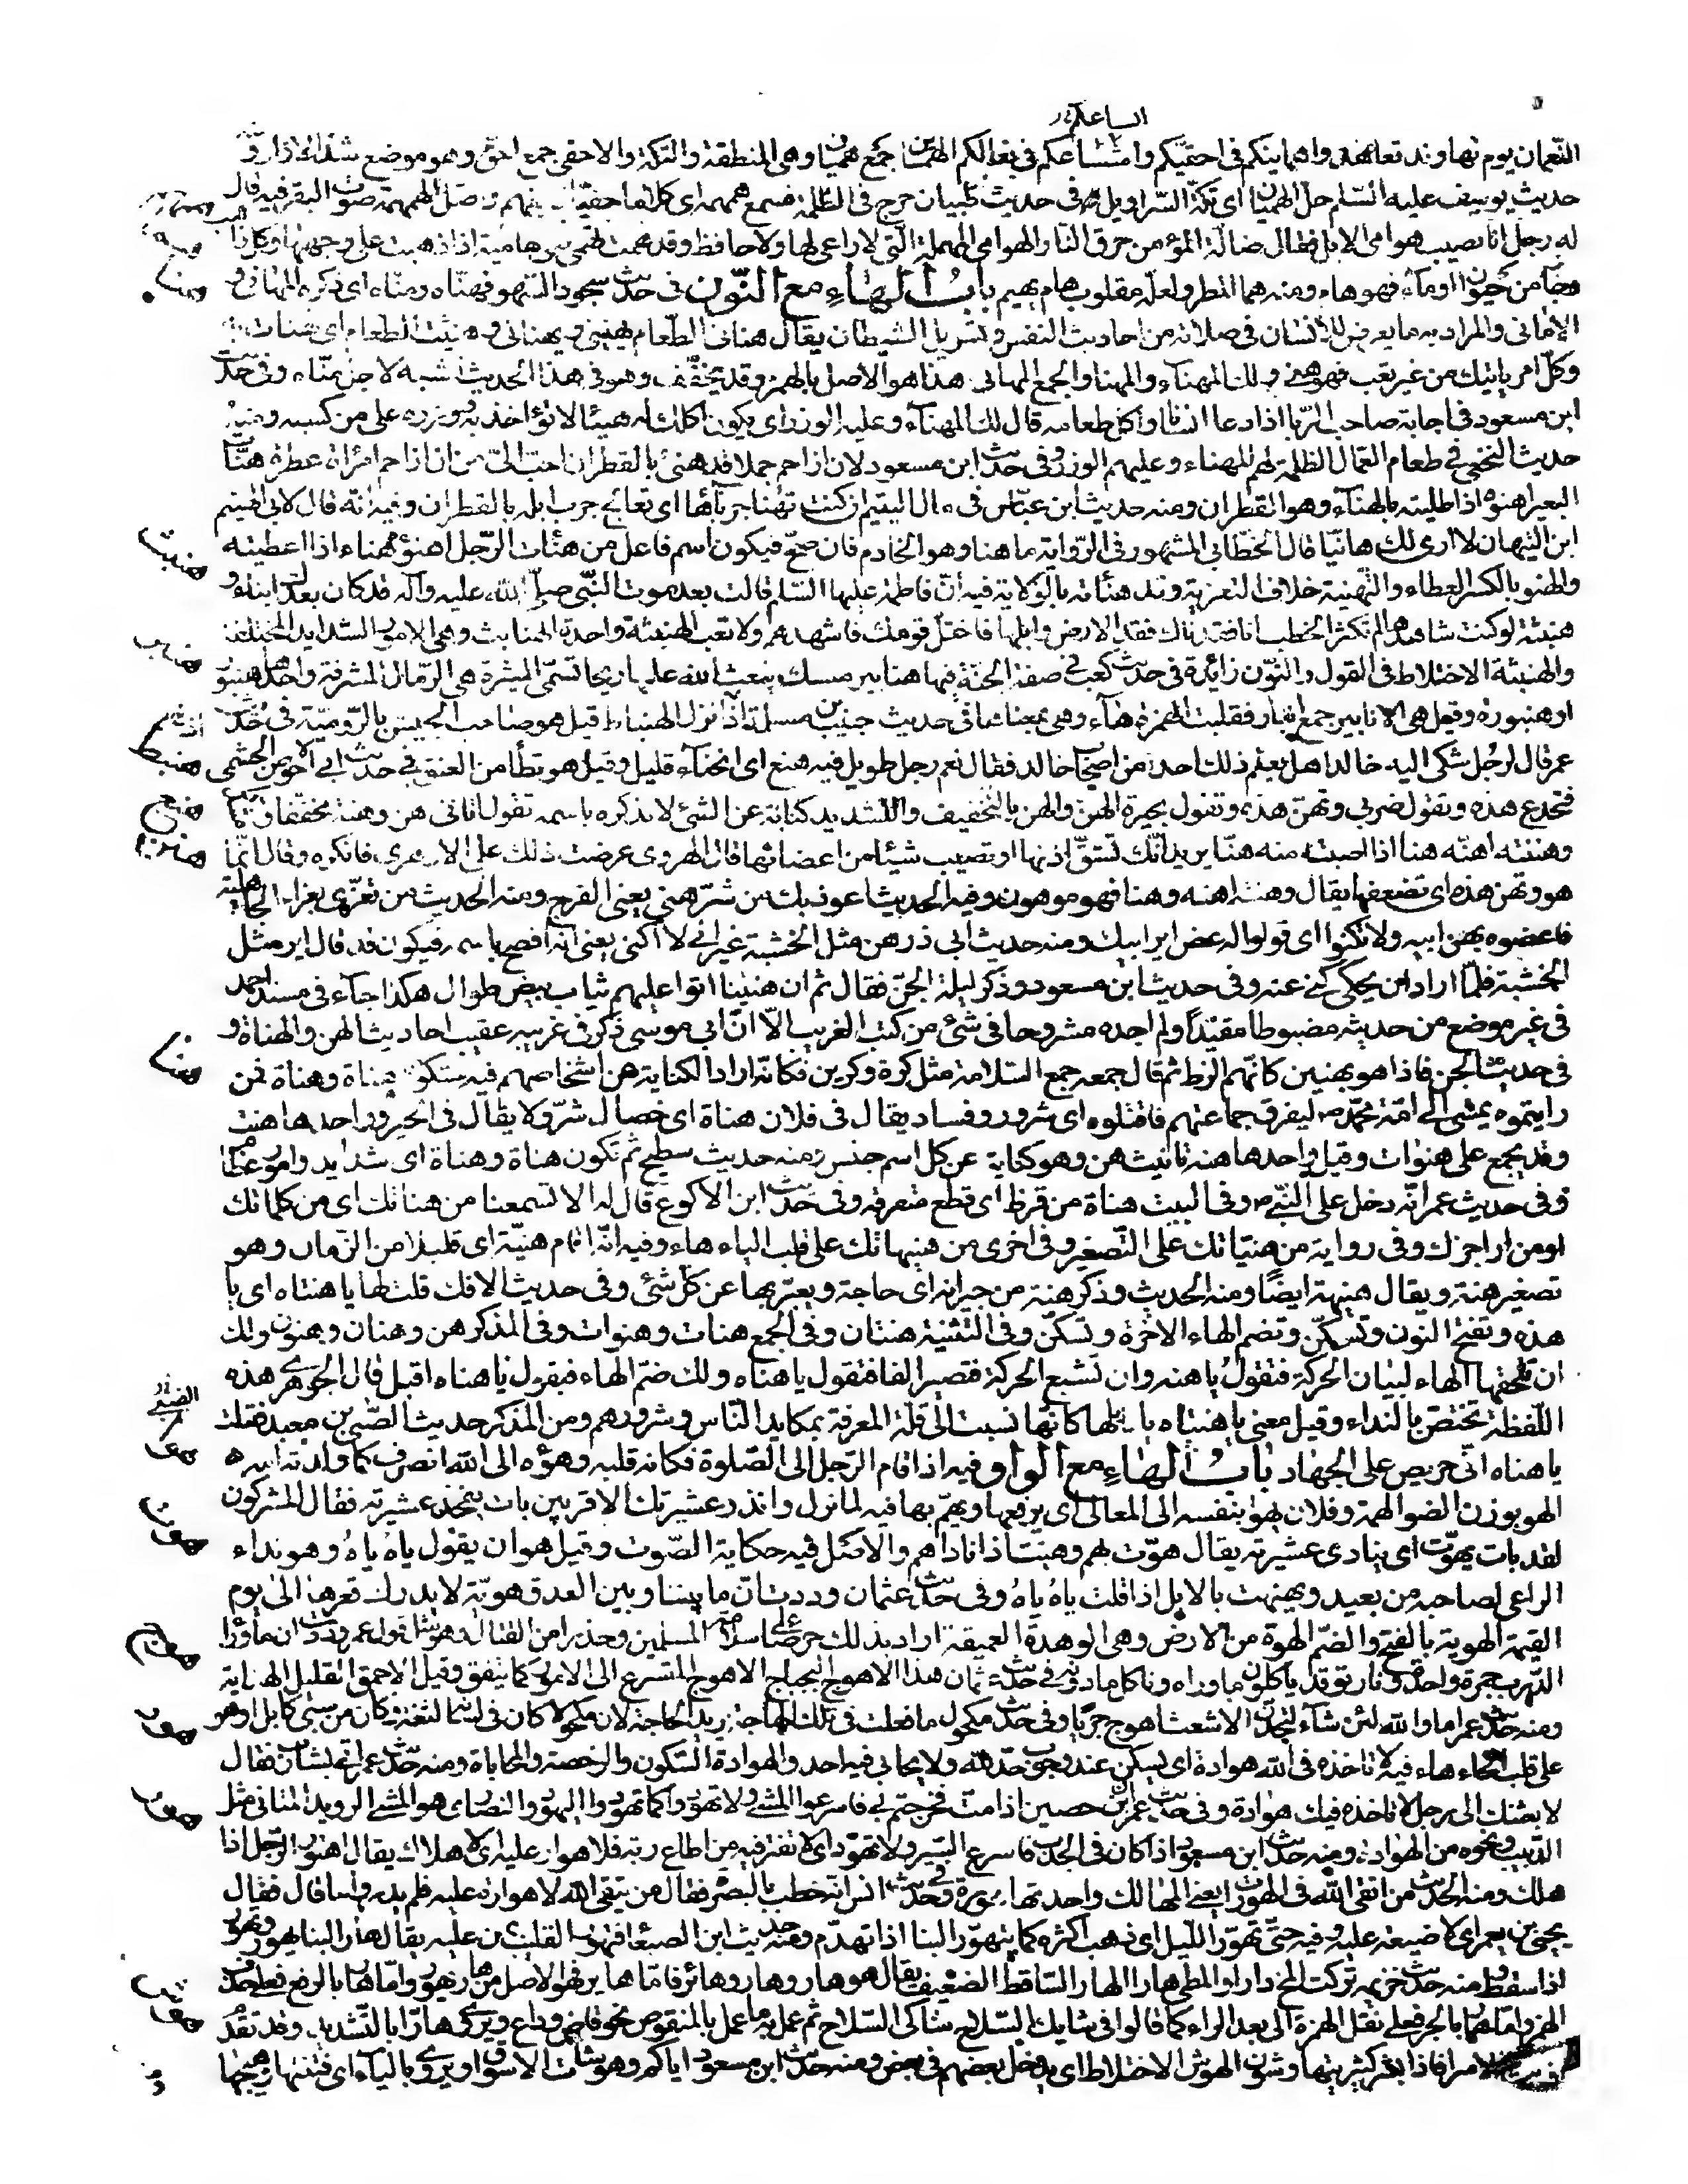 النعمان يوم نهاوند تعاهدوا هماينكم فى احقيكم واشساعكم فى نعالكم الهماين جمع هميان وهى المنطقة والتكة والاحقى جمع احق وهو موضع شد الازار و
حديث يوسف عليه السلام حل الهميان اى تكة السراويل فى حديث ظبيان خرج فى الظلمة فسمع همهمة اى كلاما خفيا لا يفهم واصل الهمهمة صوت البقر فيه قال
له رجل انا نصيب هوامى الابل فقال ضالة المؤمن حرق النار الهوامى المهملة التى لا راعى لها ولا حافظ وقد همت تهمى فهى هامية اذا ذهبت على وجهها وكل ذا
من حيوان او ماء فهو هام ومنه هما المطر ولعله مقلوب هام يهيم باب الهاء مع النون فى حديث سجود السهو فهناه ومناه اى ذكره المهانى و
الامانى والمراد به ما يعرض للانسان فى صلاته من احاديث النفس وتسويل الشيطان يقال هنانى الطعام يهنئنى ويهنانى وهنئت الطعام اى تهنات به
وكل امر ياتيك من غير تعب فهو هنئ ولك المهنا والمهنا والجمع المهانى هذا هو الاصل بالهمز وقد يخفف وهو فى هذا الحديث اشبه لاجل مناه وفى حديث
ابن مسعود فى اجابة صاحب الربا اذا دعا انسانا واكل طعامه قال لك المهنا وعليه الوزر اى يكون اكلك له هنيئا لا تؤاخذ به ووزره على من كسبه ومنه
حديث النخعى فى طعام العمال الظلمة لهم المهناء وعليهم الوزر وفى حديث ابن مسعود لان ازاحم جملا قد هنئ بالقطران احب الى من ان ازاحم امراة عطرة هنات
البعير اهنوه اذا طليته بالهناء وهو القطران ومنه حديث ابن عباس فى مال اليتيم ان كنت تهنا جرباها اى تعالج جرب ابله بالقطران وفيه انه قال لابى الهيثم
ابن التيهان لا ارى لك هانيا قال الخطابى المشهور فى الرواية ماهنا وهو الخادم فان صح فيكون اسم فاعل من هنات الرجل اهنؤه هناء اذا اعطيته
والهنو بالكسر العطاء والتهنية خلاف التعزية وقد هناته بالولاية فيه ان فاطمة عليها السلام قالت بعد موت النبى صلى الله عليه وآله قد كان بعدك انباء و
هنبثة لو كنت شاهدها لم تكثر الخطب انا فقدناك فقد الارض وابلها فاختل قومك فاشهدهم ولا تغب الهنبثة واحدة الهنابث وهى الامور الشدايد المختلفة
والهنبثة الاختلاط فى القول والنون زائدة فى حديث كعب فى صفة الجنة فيها هنابير مسك يبعث الله عليها ريحا تسمى المثيرة هى الرمال المشرفة واحدها هنبور
او هنبورة وقيل هى الانابير جمع انبار فقلبت الهمزة هاء وهى بمعناها فى حديث حبيب بن مسلمة اذا نزل الهنباط قيل هو صاحب الجيش بالرومية فى حديث
عمر قال لرجل شكى اليه خالدا هل يعلم ذلك احد من اصحاب خالد فقال نعم رجل طويل فيه هنع اى انحناء قليل وقيل هو تطامن العنق فى حديث ابى الاحوص الجشمى
فتجدع هذه وتقول ضربى وتهن هذه وتقول بحيرة الهن والهن بالتخفيف والتشديد كناية عن الشئ لا يذكره باسمه تقول اتانى هن وهنة مخففا ومثقلا
وهننته اهنه هنا اذا اصبت منه هنا يريد انك تشق اذنها او تصيب شيئا من اعضائها قال الهروى عرضت ذلك على الازهرى فانكره وقال انما
هو وتهن هذه اى تضعفها يقال وهنته اهنه وهنا فهو موهون وفيه الحديث اعوذ بك من شر هنى يعنى الفرج ومنه الحديث من تعزى بعزاء الجاهلية
فاعضوه بهن ابيه ولا تكنوا اى قولوا له عض اير ابيك ومنه حديث ابى ذر هن مثل الخشبة غير انى لا اكنى يعنى انه افصح باسمه فيكون قد قال اير مثل
الخشبة فلما اراد ان يحكى كنى عنه وفى حديث ابن مسعود وذكر ليلة الجن فقال ثم ان هنينا اتوا عليهم ثياب بيض طوال هكذا جاء فى مسند احمد
فى غير موضع من حديثه مضبوطا مقيدا ولم اجده مشروحا فى شئ من كتب الغريب الا ان ابى موسى ذكر فى غريبه عقيب احاديث الهن والهناة و
فى حديث الجن فاذا هو بهنين كانهم الزط ثم قال جمعه جمع السلامة مثل كرة وكرين فكانه اراد الكناية عن اشخاصهم فيه ستكون هناة وهناة فمن
رايتموه يمشى الى امة محمد ص ليفرق جماعتهم فاقتلوه اى شرور وفساد يقال فى فلان هناة اى خصال شر ولا يقال فى الخير وواحدها هنت
وقد يجمع على هنوات وقيل واحدها هنة تانيث هن وهو كناية عن كل اسم جنس ومنه حديث سطيح ثم تكون هناة وهناة اى شدايد وامور عظام
وفى حديث عمر انه دخل على النبى ص وفى البيت هناة من قرظ اى قطع متفرقة وفى حديث ابن الاكوع قال له الا تسمعنا من هناتك اى من كلماتك
او من اراجيزك وفى رواية من هنياتك على التصغير وفى اخرى من هنيهاتك على قلب الياء هاء وفيه انه اقام هنية اى قليلا من الزمان وهو
تصغير هنة ويقال هنيهة ايضا ومنه الحديث وذكر هنة من جيرانه اى حاجة ويعبر بها عن كل شئ وفى حديث الافك قلت لها يا هنتاه اى يا
هذه وتفتح النون وتسكن وتضم الهاء الاخرة وتسكن وفى التثنية هنتان وفى الجمع هنات وهنوات وفى المذكر هن وهنان وهنون ولك
ان تلحقها الهاء لبيان الحركة فتقول يا هنه وان تشبع الحركة فتصير الفا فتقول يا هناه ولك ضم الهاء فيقول يا هناه اقبل قال الجوهرى هذه
اللفظة تختص بالنداء وقيل معنى يا هنتاه يا بلها كانها نسبت الى قلة المعرفة بمكايد الناس وشرورهم ومن المذكر حديث الصبى بن معبد فقلت
يا هناه انى حريص على الجهاد باب الهاء مع الواو فيه اذا قام الرجل الى الصلوة فكان قلبه وهوؤه الى الله انصرف كما ولدته امه ه
الهو بوزن الضو الهمة وفلان يهؤ بنفسه الى المعالى اى يرفعها ويهم بها فيه لما نزل وانذر عشيرتك الاقربين بات يفخذ عشيرته فقال المشركون
لقد بات يهوت اى ينادى عشيرته يقال هوت بهم وهيت اذا ناداهم والاصل فيه حكاية الصوت وقيل هو ان يقول ياه ياه وهو نداء
الراعى لصاحبه من بعيد ويهيهت بالابل اذا قلت ياه ياه وفى حديث عثمان وددت ان ما بيننا وبين العدو هوتة لا يدرك قعرها الى يوم
القيمة الهوتة بالفتح والضم الهوة من الارض وهى الوهدة العميقة اراد بذلك حرصا على سلامة المسلمين وحذرا من القتال وهو مثل قول عمر وددت ان ما وراء
الدرب جمرة واحدة ونار توقد ياكلون ما وراه وناكل ما دونه فى حديث عثمان هذا الاهوج البجباج الاهوج المتسرع الى الامور كما يتفق وقيل الاحمق القليل الهداية
ومنه حديث عمر اما والله لئن شاء لتجدن الاشعث اهوج جريا وفى حديث مكحول ما فعلت فى تلك الهاجة يريد الحاجة لان مكحولا كان فى لسانه لثغة وكان من سبى كابل او هو
على قلب الحاء هاء فيه لا تاخذه فى الله هوادة اى لا يسكن عند وجوب حد الله ولا يحابى فيه احد والهوادة السكون والرخصة والمحاباة ومنه حديث عمر اتى بشارب فقال
لابعثنك الى رجل لا تاخذه فيك هوادة وفى حديث عمران بن حصين اذا مت فخرجتم بى فاسرعوا المشى ولا تهودوا كما تهود اليهود والنصارى هو المشى الرويد المتانى مثل
الدبيب ونحوه من الهوادة ومنه حديث ابن مسعود اذا كان فى الجدب فاسرع السير ولا تهود اى لا تفتر فيه من اطاع ربه فلا هوارة عليه اى لا هلاك يقال اهتور الرجل اذا
هلك ومنه الحديث من اتقى الله وقى الهورات يعنى المهالك واحدتها هورة وفى حديث انس انه خطب بالبصرة فقال من يتقى الله لا هوارة عليه فلم يدروا ما قال فقال
يحيى بن يعمر اى لا ضيعة عليه وفيه حتى تهور الليل اى ذهب اكثره كما يتهور البنا اذا تهدم ومنه حديث ابن الصبغا فتهور القليب بمن عليه يقال هار البنا يهور وتهور
اذا سقط ومنه حديث خزيمة تركت المخ رارا والمطى هارا الهار الساقط الضعيف يقال هو هار وهار وهائر فاما هاير فهو الاصل من هار يهور واما هار بالرفع فعلى حذف
الهمزة واما هار بالجر فعلى نقل الهمزة الى بعد الراء كما قالوا فى شايك السلاح شاكى السلاح ثم عمل به ما عمل بالمنقوص نحو قاض وداع ويروى هارا بالتشديد وقد تقدم
فيه الاسرا فاذا بشر كثير يتهاوشون الهوش الاختلاط اى يدخل بعضهم فى بعض ومنه حديث ابن مسعود اياكم وهوشات الاسواق ويروى بالياء اى فتنها وهيجها